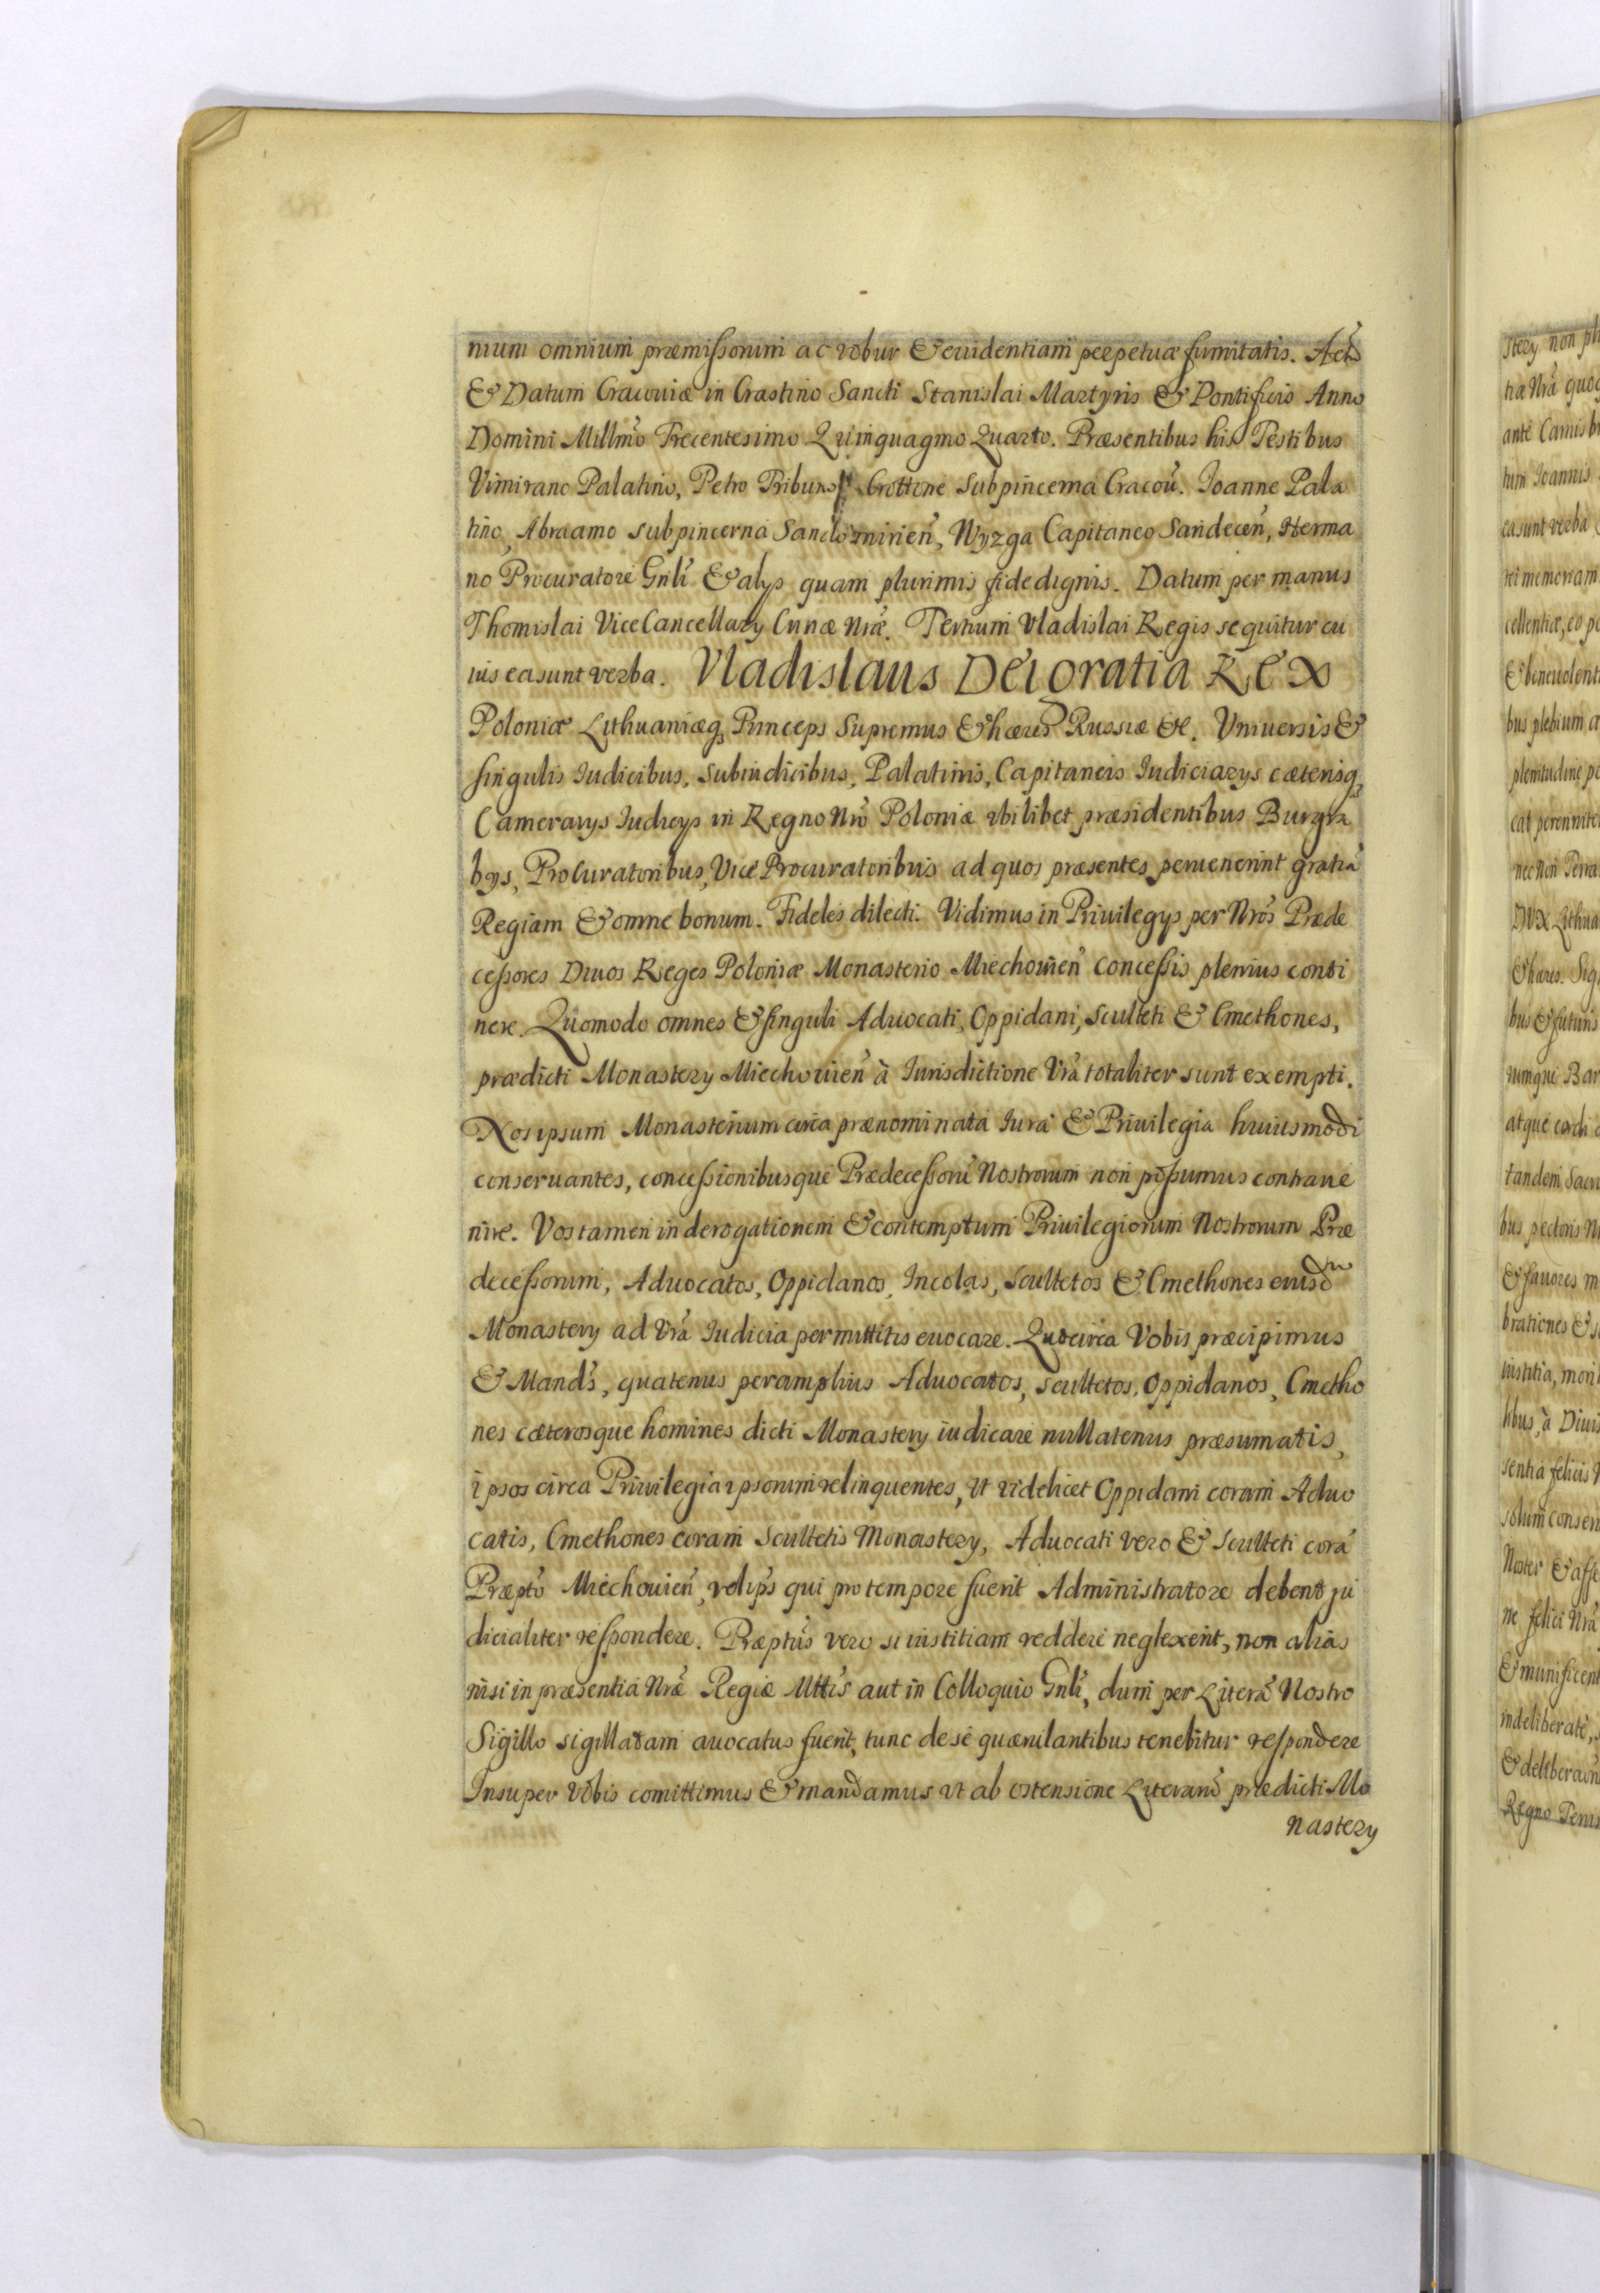 nium omnium præmissorum ac robur & euidentiam perpetuæ firmitatis. Act̃
& Datum Cracouiæ in Crastino Sancti Stanislai Martyris & Pontificis Anno
Domini Millmo Trecentesimo Quinquagmo Quarto. Præsentibus his Testibus
Vimirano Palatino, Petro Tribuno, Crottone Subpincerna Cracou̇. Ioanne Pala
tino, Abraamo subpincerna Sandomirien̄, Wyzga Capitaneo Sandecen̄, Herma
no Procuratore Gnli & alys quam plurimis fide dignis. Datum per manus
Thomislai ViceCancellary Curiæ Nræ. Tertium Vladislai Regis sequitur cu
ius ea sunt verba. Vladislaus Dei Gratia Rex
Poloniæ Lithuaniæq; Princeps Supremus & hæres Russiæ &c. Vniuersis &
singulis Iudicibus, Subiudicibus, Palatinis, Capitaneis Iudiciarys cæterisq;
Camerarys Iudicys in Regno Nro Poloniæ vbilibet præsidentibus Burgra
bys, Procuratoribus, Vice Procuratoribus ad quos præsentes peruenerint gratiā
Regiam & omne bonum. Fideles dilecti. Vidimus in Priuilegys per Nros Præde
cessores Diuos Reges Poloniæ Monasterio Miechouien̄ concessis plenius conti
nere. Quomodo omnes & singuli Aduocati, Oppidani, Sculteti & Cmethones,
prædicti Monastery Miechouien̄ à Iurisdictione Vrā totaliter sunt exempti.
Nos ipsum Monasterium circa prænominata Iura & Priuilegia huiusmodi
conseruantes, concessionibusque Prædecessorū Nostrorum non possumus contraue
nire. Vos tamen in derogationem & contemptum Priuilegiorum Nostrorum Præ
decessorum, Aduocatos, Oppidanos, Incolas, Scultetos & Cmethones eiusdm
Monastery ad Vrā Iudicia permittitis euocare. Quocirca Vobis præcipimus
& Mands, quatenus peramplius Aduocatos, scultetos, Oppidanos, Cmetho
nes cæterosque homines dicti Monastery iudicare nullatenus præsumatis,
ipsos circa Priuilegia ipsorum relinquentes, Vt videlicet Oppidani coram Aduo
catis, Cmethones coram Scultetis Monastery, Aduocati vero & Sculteti corā
Præpto Miechouien̄, vel ips qui pro tempore fuerit Administratore debent iu
dicialiter respondere. Præptus vero si iustitiam reddere neglexerit, non alias
nisi in præsentia Nræ Regiæ Mttis aut in Colloquio Gnli, dum per Literā Nostro
Sigillo sigillatam auocatus fuerit, tunc de se quærulantibus tenebitur respondere
Insuper Vobis comittimus & mandamus vt ab ostensione Literarū prædicti Mo
nastery